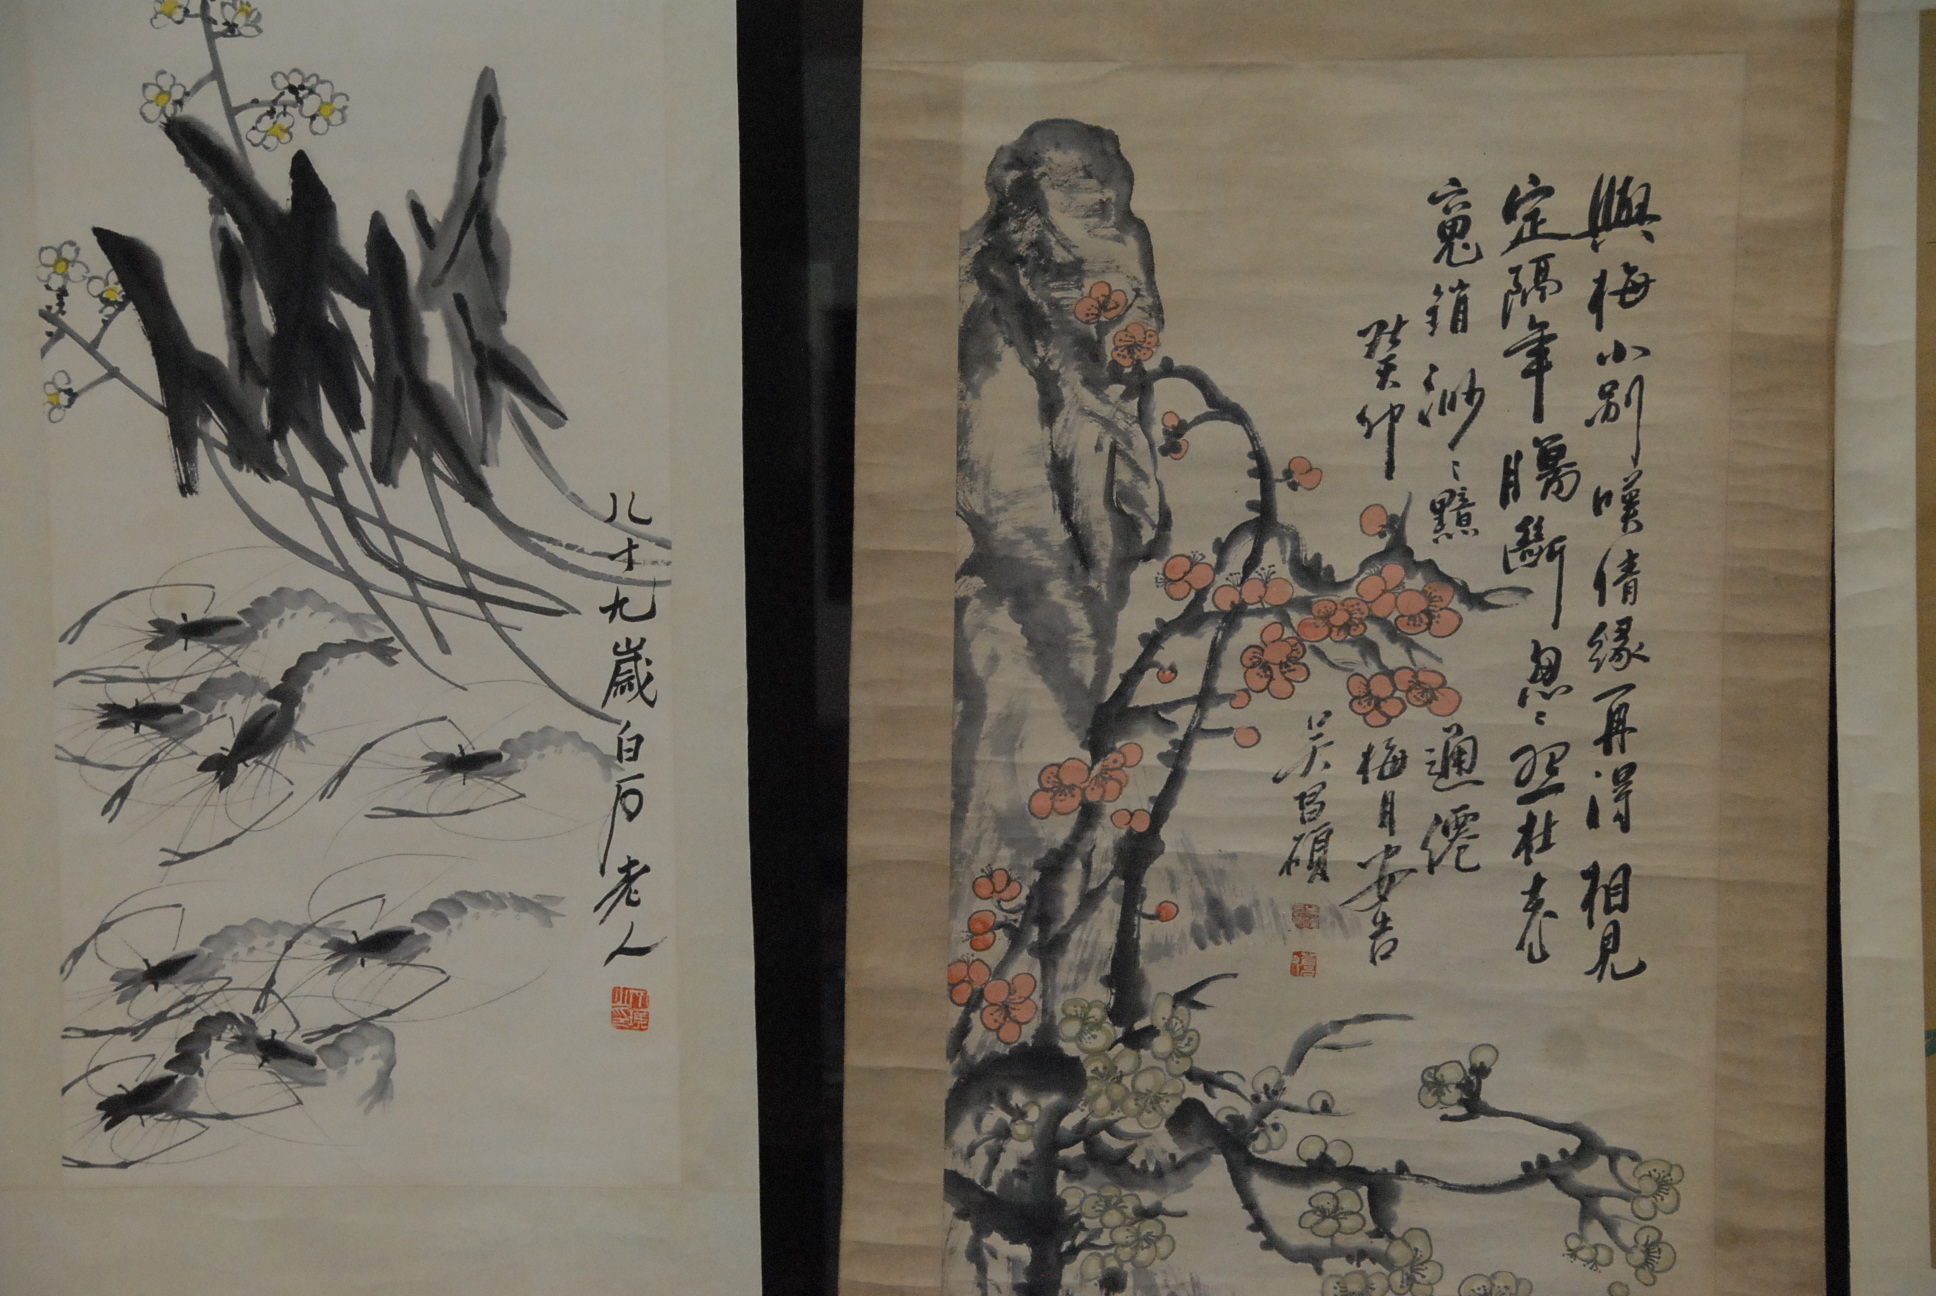 與梅小別嘆倩緣再得相見
定隔年腸斷忽〻
杜老
寬銷渺〻黯
逋僊
癸卯
梅月安吉
吳昌碩
八十九歲白石老人